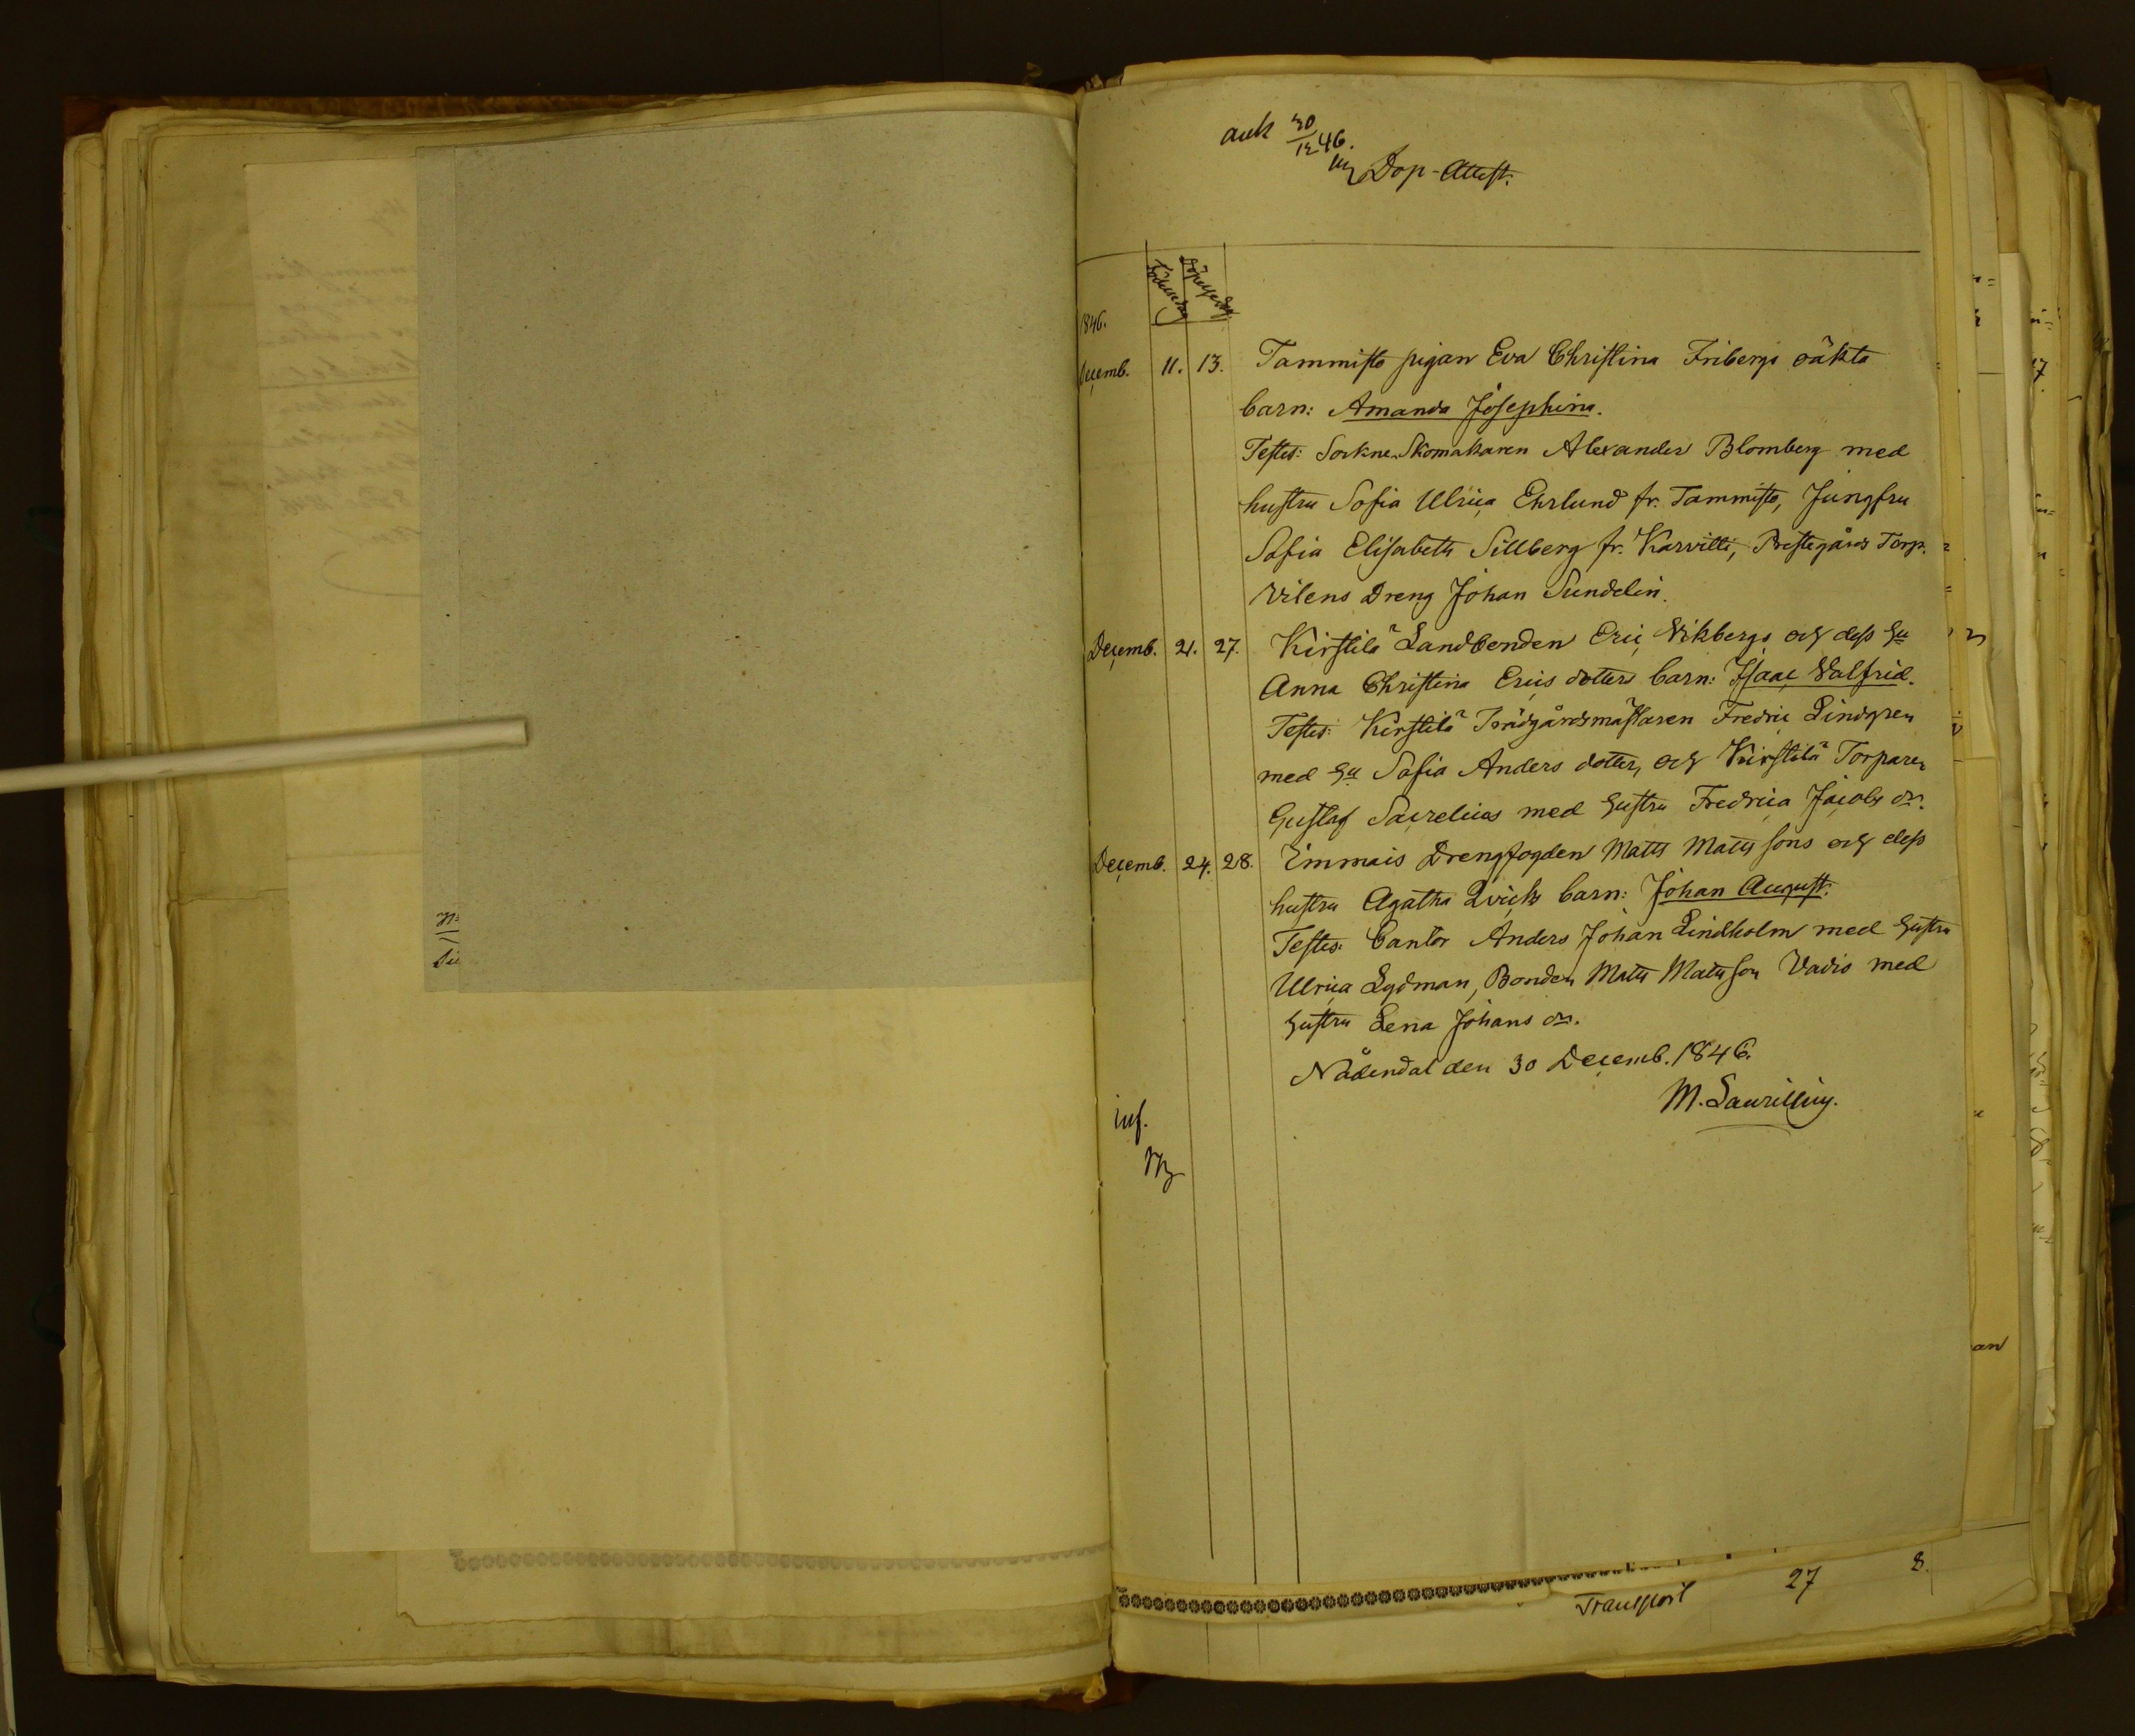 ank 30/12 46.
Dop-Attest.
Födelsedag Döpelsedag
1846.
Decemb. 11. 13. Tammisto pigan Eva Christina Fribergs oäkta
barn: Amanda Josephina.
Testes: Sockne Skomakaren Alexander Blomberg med
hustru Sofia Ulrica Ehrlund fr. Tammisto, Jungfru
Sofia Elisabeth Sillberg fr. Karvitti, Prestegårds Torp.
Vilens Dreng Johan Sundelin.
Decemb. 21. 27. Kirstilä Landbonden Eric Vikbergs och dess Hu
Anna Christina Erics dotters barn: Isaac Valfrid.
Testes: Kirstilä Trädgårdsmästaren Fredric Lindgren
med Hu Sofia Anders dotter, och Kirstilä Torparen
Gustaf Saxelius med Hustru Fredrica Jacobs dr.
Decemb. 24. 28. Emmais Drengfogden Matts Mattssons och dess
hustru Agatha Qvicks barn: Johan August.
Testes: Cantor Anders Johan Lindholm med Hustru
Ulrica Lydman, Bonden Matts Mattsson Vadis med
Hustru Lena Johans dr.
Nådendal den 30 Decemb. 1846.
M. Laurellius.
inf.
Transport 27 8.
an